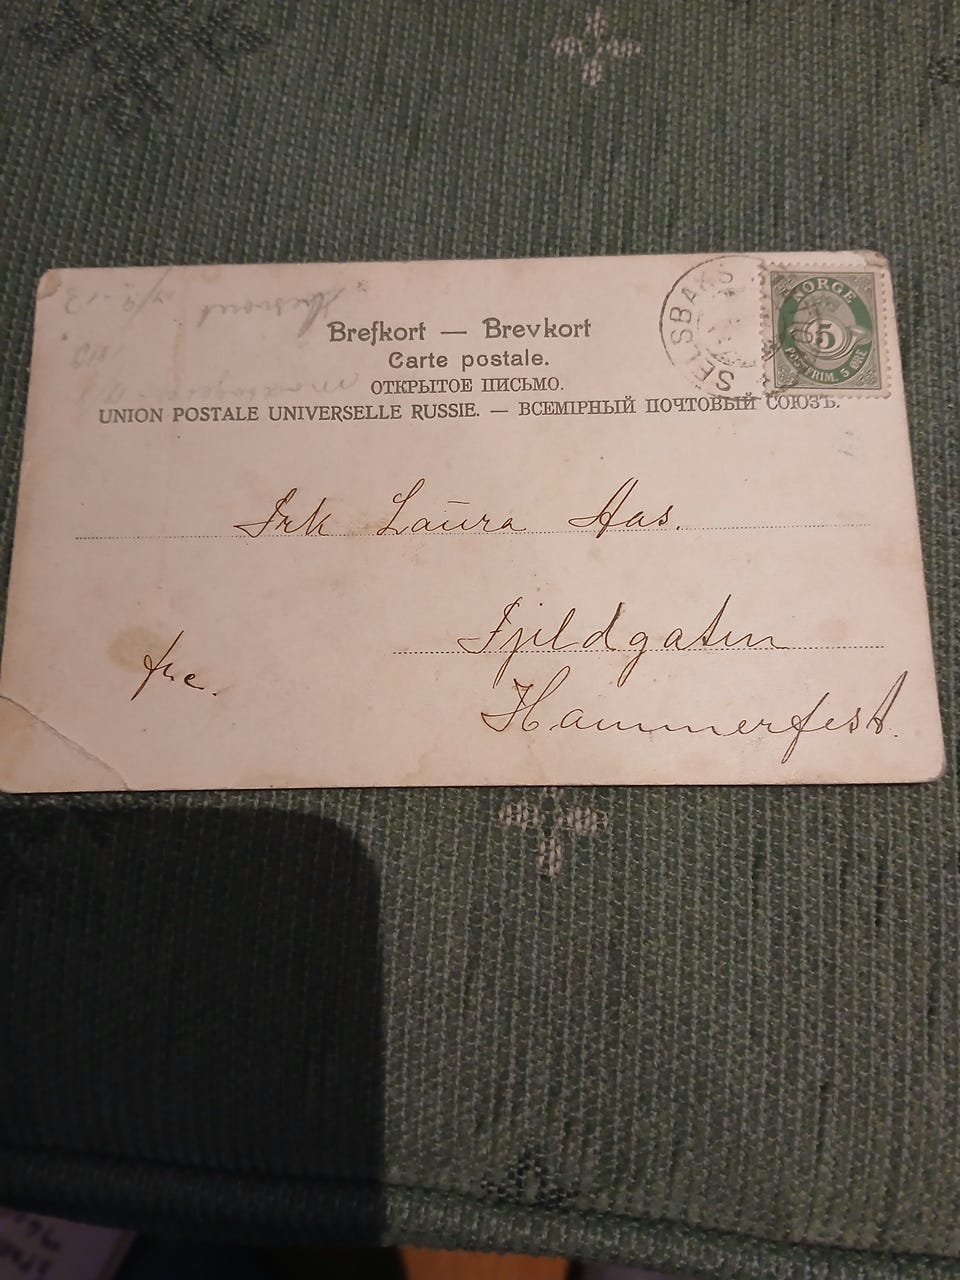 Brefkort — Brevkort
Carte postale.
ОТКРЫТОЕ ПИСЬМО.
UNION POSTALE UNIVERSELLE RUSSIE. — ВСЕМІРНЫЙ ПОЧТОВЫЙ СОЮЗЪ.
SELSBAK
NORGE
5
POSTFRIM. 5 ØRE
Frk Laura Aas.
Fjeldgaten
Hammerfest.